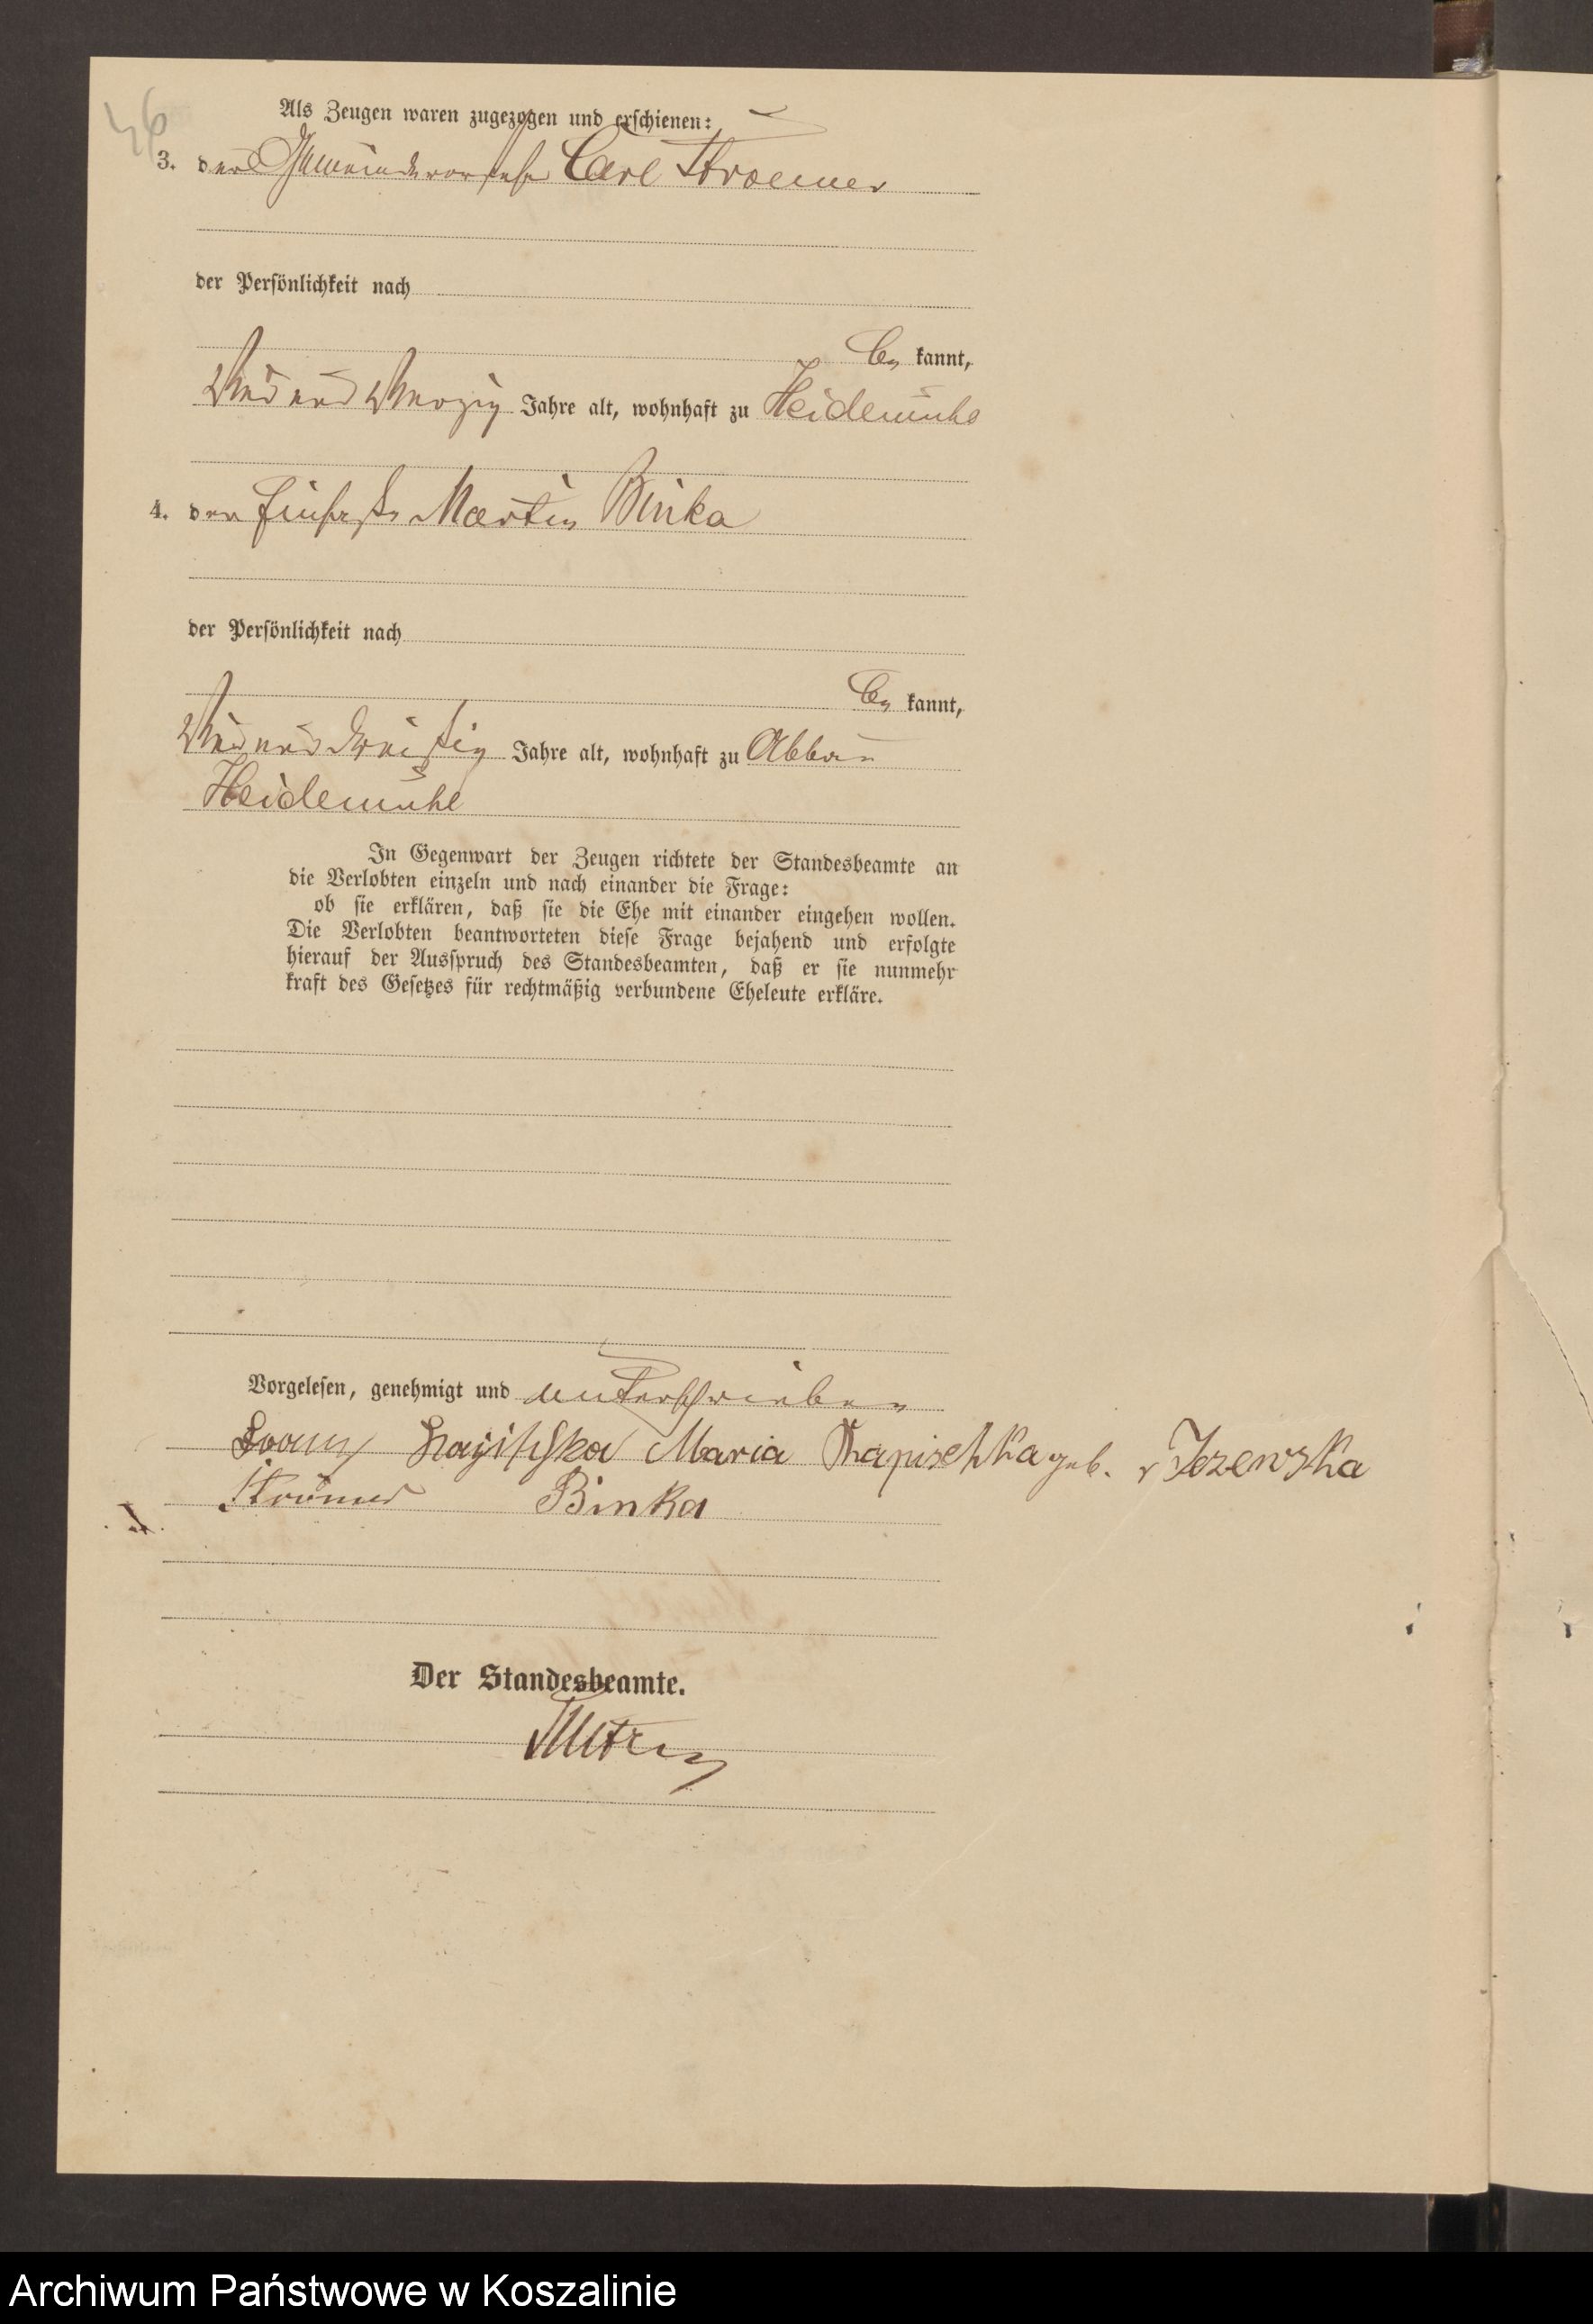 46
Als Zeugen waren zugezogen und erschienen:
3. der Gemeindevorsteher Carl Stroemer
der Persönlichkeit nach
be kannt,
vierzig Jahre alt, wohnhaft zu Heidemühl
4. der Einsasse Martin Binka
der Persönlichkeit nach
be kannt,
dreißig Jahre alt, wohnhaft zu Abbau
Heidemühl
In Gegenwart der Zeugen richtete der Standesbeamte an
die Verlobten einzeln und nach einander die Frage:
ob sie erklären, daß sie die Ehe mit einander eingehen wollen.
Die Verlobten beantworteten diese Frage bejahend und erfolgte
hierauf der Ausspruch des Standesbeamten, daß er sie nunmehr
kraft des Gesetzes für rechtmäßig verbundene Eheleute erkläre.
Vorgelesen, genehmigt und unterschrieben
Franz Maria geb. v Jezewska
Strömer Binka
Der Standesbeamte.
Archiwum Państwowe w Koszalinie